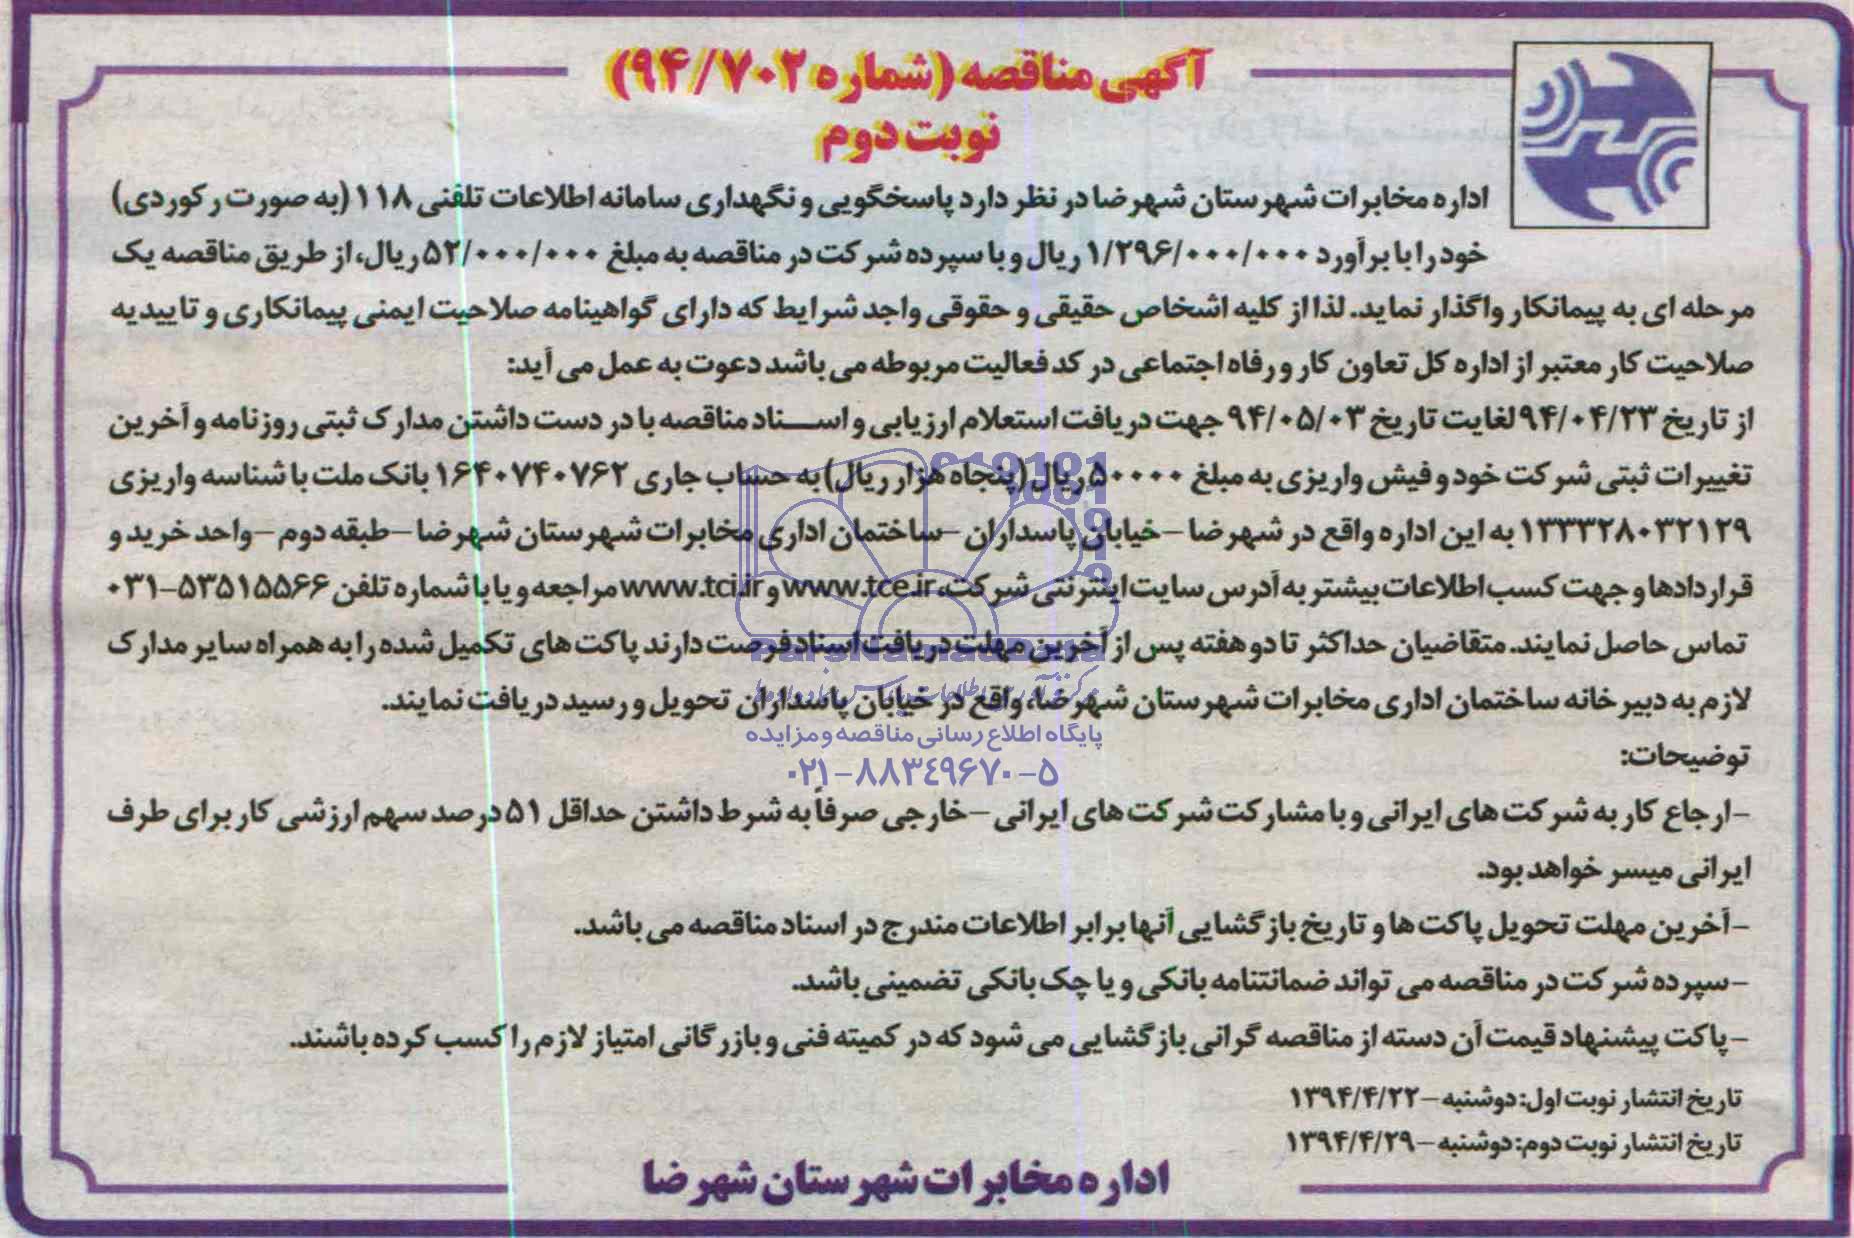 آگهی مناقصه (شماره ۹۴/۷۰۲)
نوبت دوم
اداره مخابرات شهرستان شهرضا در نظر دارد پاسخگویی و نگهداری سامانه اطلاعات تلفنی ۱۱۸ (به صورت رکوردی)
خود را با برآورد ۱/۲۹۶/۰۰۰/۰۰۰ ریال و با سپرده شرکت در مناقصه به مبلغ ۵۲/۰۰۰/۰۰۰ ریال، از طریق مناقصه یک
مرحله ای به پیمانکار واگذار نماید. لذا از کلیه اشخاص حقیقی و حقوقی واجد شرایط که دارای گواهینامه صلاحیت ایمنی پیمانکاری و تاییدیه
صلاحیت کار معتبر از اداره کل تعاون کار و رفاه اجتماعی در کد فعالیت مربوطه می باشد دعوت به عمل می آید:
از تاریخ ۹۴/۰۴/۲۳ لغایت تاریخ ۹۴/۰۵/۰۳ جهت دریافت استعلام ارزیابی و اسناد مناقصه با در دست داشتن مدارک ثبتی روزنامه و آخرین
تغییرات ثبتی شرکت خود و فیش واریزی به مبلغ ۵۰۰۰۰ ریال (پنجاه هزار ریال) به حساب جاری ۱۶۴۰۷۴۰۷۶۲ بانک ملت با شناسه واریزی
۱۳۳۳۲۸۰۳۲۱۲۹ به این اداره واقع در شهرضا – خیابان پاسداران – ساختمان اداری مخابرات شهرستان شهرضا – طبقه دوم – واحد خرید و
قراردادها و جهت کسب اطلاعات بیشتر به آدرس سایت اینترنتی شرکت، www.tce.ir و www.tci.ir مراجعه و یا با شماره تلفن ۵۳۵۱۵۵۶۶–۰۳۱
تماس حاصل نمایند. متقاضیان حداکثر تا دو هفته پس از آخرین مهلت دریافت اسناد فرصت دارند پاکت های تکمیل شده را به همراه سایر مدارک
لازم به دبیرخانه ساختمان اداری مخابرات شهرستان شهرضا، واقع در خیابان پاسداران تحویل و رسید دریافت نمایند.
پایگاه اطلاع رسانی مناقصه و مزایده
۰۲۱–۸۸۳۴۹۶۷۰–۵
توضیحات:
– ارجاع کار به شرکت های ایرانی و با مشارکت شرکت های ایرانی – خارجی صرفاً به شرط داشتن حداقل ۵۱ درصد سهم ارزشی کار برای طرف
ایرانی میسر خواهد بود.
– آخرین مهلت تحویل پاکت ها و تاریخ بازگشایی آنها برابر اطلاعات مندرج در اسناد مناقصه می باشد.
– سپرده شرکت در مناقصه می تواند ضمانتنامه بانکی و یا چک بانکی تضمینی باشد.
– پاکت پیشنهاد قیمت آن دسته از مناقصه گرانی بازگشایی می شود که در کمیته فنی و بازرگانی امتیاز لازم را کسب کرده باشند.
تاریخ انتشار نوبت اول: دوشنبه – ۱۳۹۴/۴/۲۲
تاریخ انتشار نوبت دوم: دوشنبه – ۱۳۹۴/۴/۲۹
اداره مخابرات شهرستان شهرضا